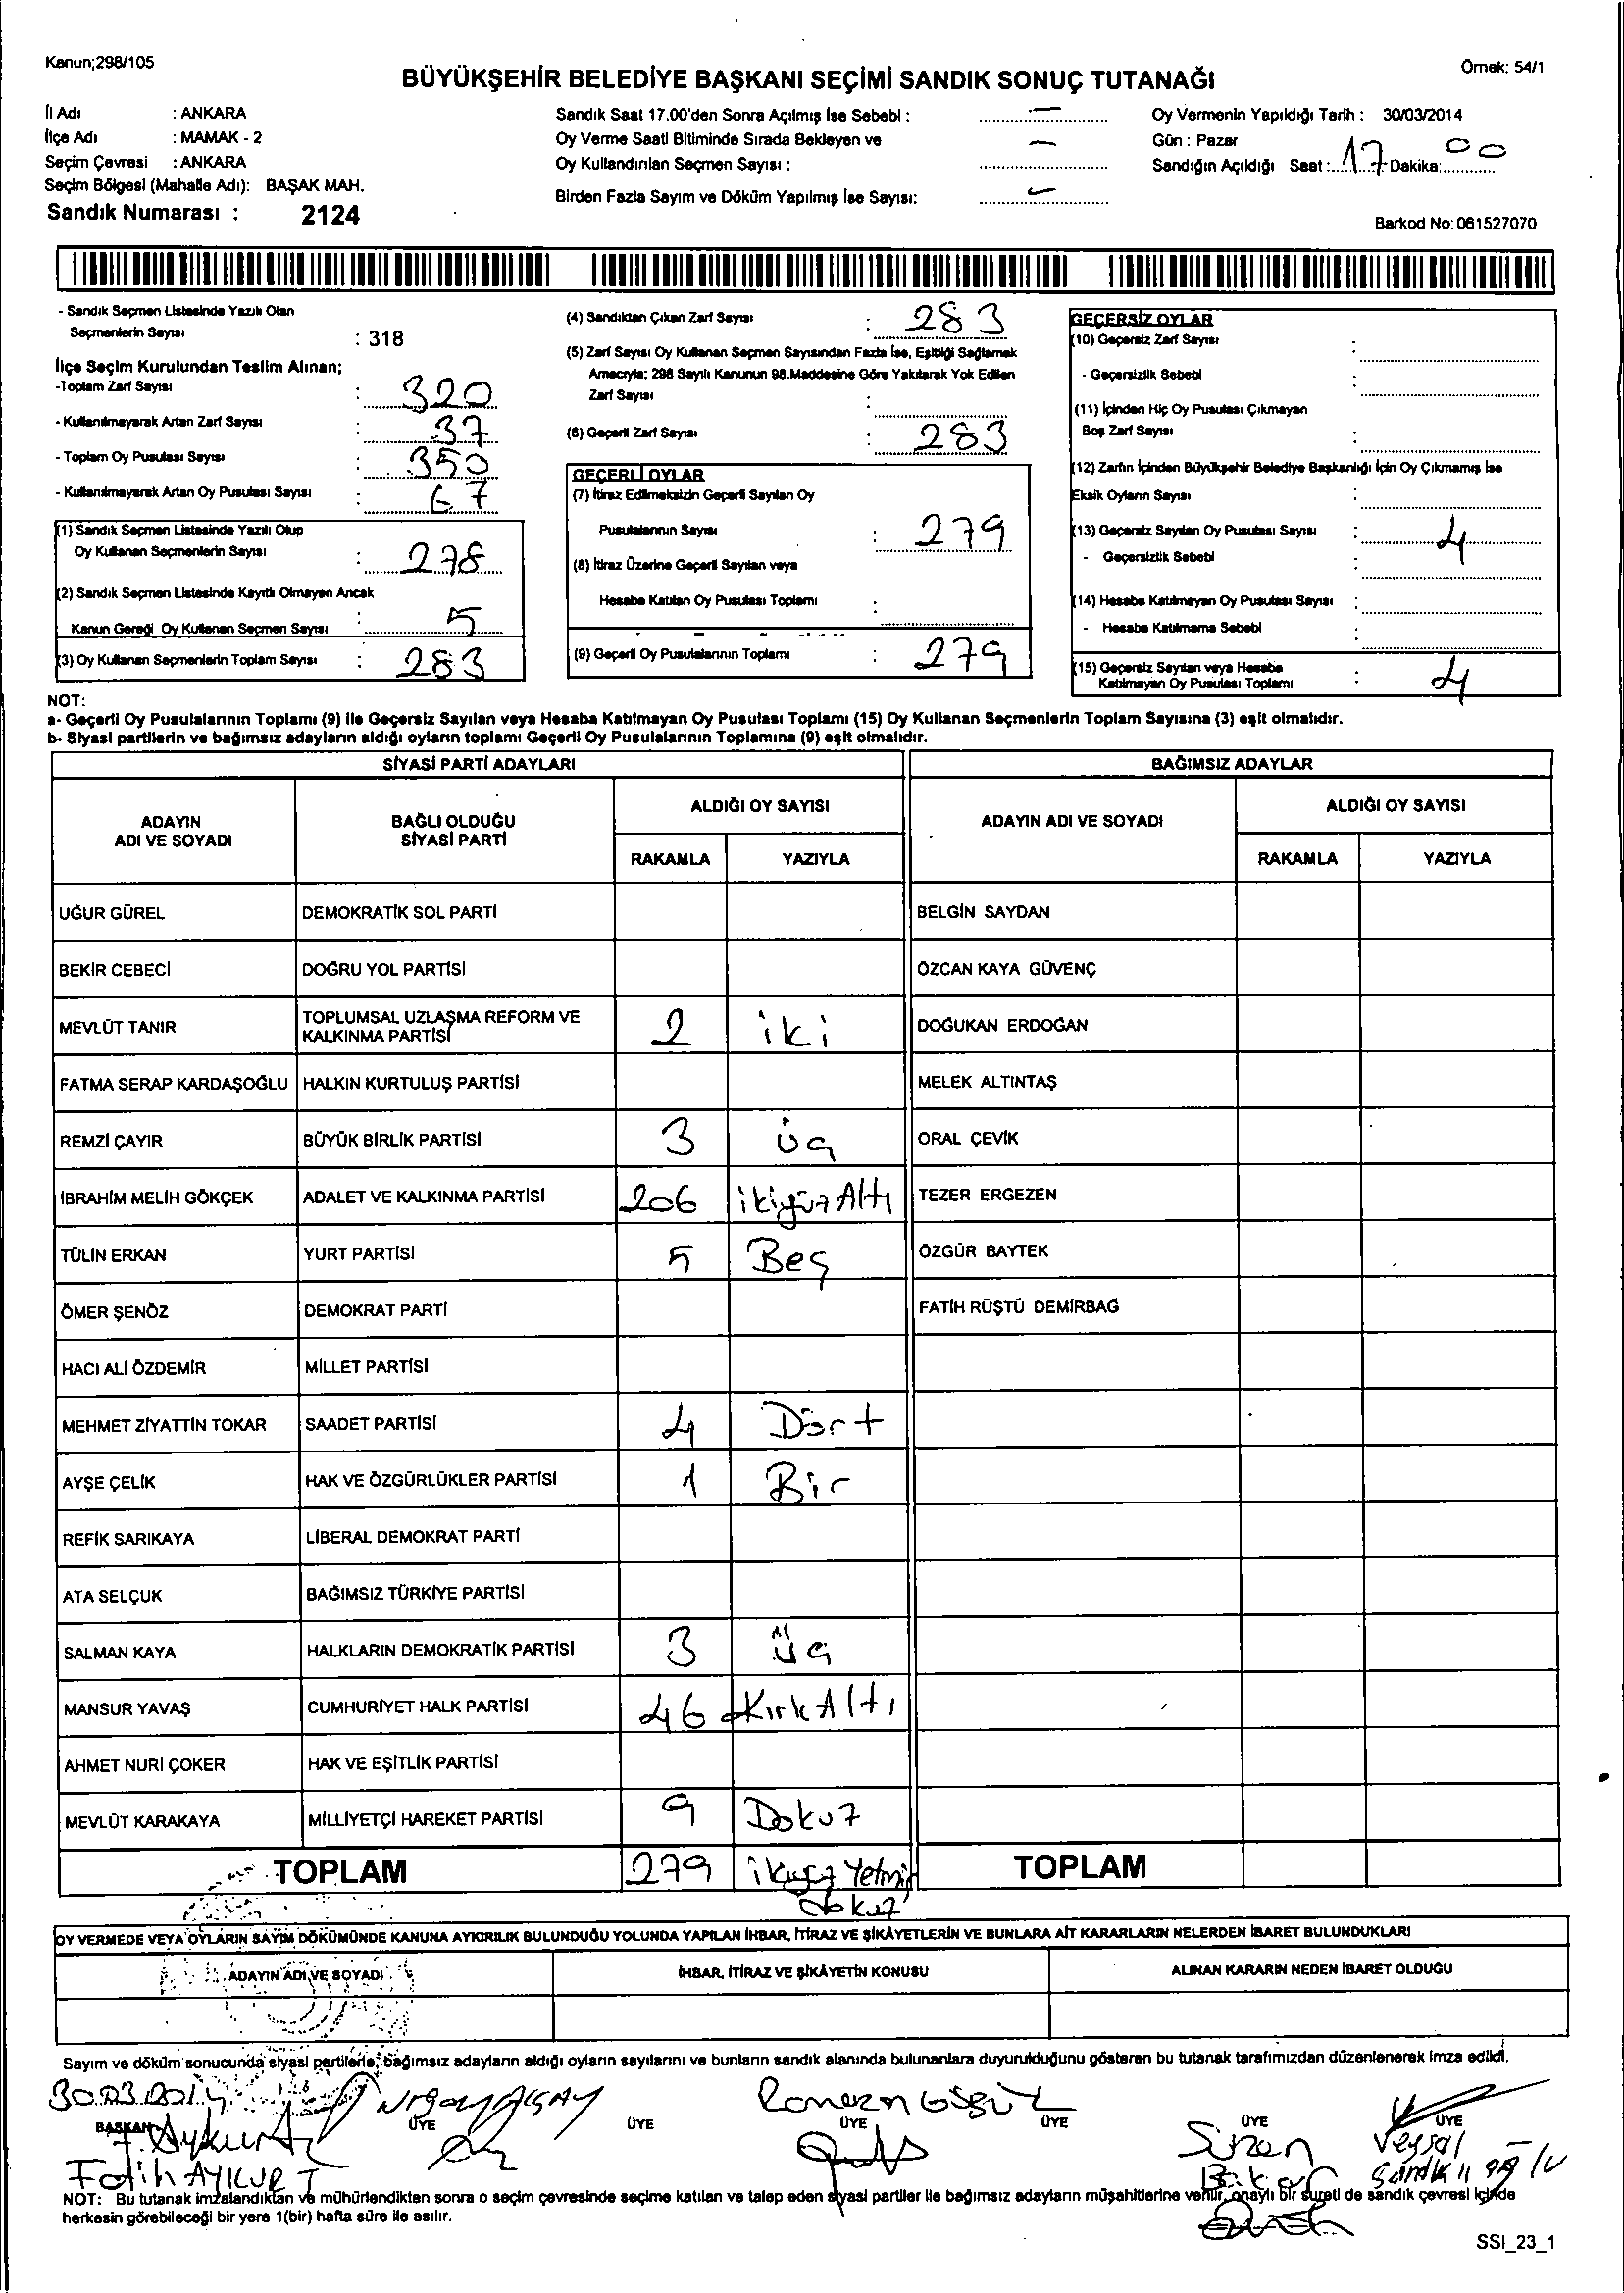 Kanun;298/105
Örnek: 54/1
BÜYÜKŞEHİR BELEDİYE BAŞKANI SEÇİMİ SANDIK SONUÇ TUTANAĞI
İl Adı : ANKARA
İlçe Adı : MAMAK - 2
Seçim Çevresi : ANKARA
Seçim Bölgesi (Mahalle Adı): BAŞAK MAH.
Sandık Numarası : 2124
Sandık Saat 17.00'den Sonra Açılmış İse Sebebi : —
Oy Verme Saati Bitiminde Sırada Bekleyen ve
Oy Kullandırılan Seçmen Sayısı : —
Birden Fazla Sayım ve Döküm Yapılmış İse Sayısı: —
Oy Vermenin Yapıldığı Tarih : 30/03/2014
Gün : Pazar
Sandığın Açıldığı Saat : 17 Dakika: 00
Barkod No: 061527070
- Sandık Seçmen Listesinde Yazılı Olan
Seçmenlerin Sayısı : 318
İlçe Seçim Kurulundan Teslim Alınan;
-Toplam Zarf Sayısı : 320
- Kullanılmayarak Artan Zarf Sayısı : 37
- Toplam Oy Pusulası Sayısı : 350
- Kullanılmayarak Artan Oy Pusulası Sayısı : 67
(1) Sandık Seçmen Listesinde Yazılı Olup
Oy Kullanan Seçmenlerin Sayısı : 278
(2) Sandık Seçmen Listesinde Kayıtlı Olmayan Ancak
Kanun Gereği Oy Kullanan Seçmen Sayısı : 5
(3) Oy Kullanan Seçmenlerin Toplam Sayısı : 283
(4) Sandıktan Çıkan Zarf Sayısı : 283
(5) Zarf Sayısı Oy Kullanan Seçmen Sayısından Fazla İse, Eşitliği Sağlamak
Amacıyla; 298 Sayılı Kanunun 98.Maddesine Göre Yakılarak Yok Edilen
Zarf Sayısı :
(6) Geçerli Zarf Sayısı : 283
GEÇERLİ OYLAR
(7) İtiraz Edilmeksizin Geçerli Sayılan Oy
Pusulalarının Sayısı : 279
(8) İtiraz Üzerine Geçerli Sayılan veya
Hesaba Katılan Oy Pusulası Toplamı :
(9) Geçerli Oy Pusulalarının Toplamı : 279
GEÇERSİZ OYLAR
(10) Geçersiz Zarf Sayısı :
- Geçersizlik Sebebi :
(11) İçinden Hiç Oy Pusulası Çıkmayan
Boş Zarf Sayısı :
(12) Zarfın İçinden Büyükşehir Belediye Başkanlığı İçin Oy Çıkmamış İse
Eksik Oyların Sayısı :
(13) Geçersiz Sayılan Oy Pusulası Sayısı : 4
- Geçersizlik Sebebi :
(14) Hesaba Katılmayan Oy Pusulası Sayısı :
- Hesaba Katılmama Sebebi :
(15) Geçersiz Sayılan veya Hesaba
Katılmayan Oy Pusulası Toplamı : 4
NOT:
a- Geçerli Oy Pusulalarının Toplamı (9) ile Geçersiz Sayılan veya Hesaba Katılmayan Oy Pusulası Toplamı (15) Oy Kullanan Seçmenlerin Toplam Sayısına (3) eşit olmalıdır.
b- Siyasi partilerin ve bağımsız adayların aldığı oyların toplamı Geçerli Oy Pusulalarının Toplamına (9) eşit olmalıdır.
SİYASİ PARTİ ADAYLARI
BAĞIMSIZ ADAYLAR
ADAYIN
ADI VE SOYADI
BAĞLI OLDUĞU
SİYASİ PARTİ
ALDIĞI OY SAYISI
RAKAMLA YAZIYLA
ADAYIN ADI VE SOYADI
ALDIĞI OY SAYISI
RAKAMLA YAZIYLA
UĞUR GÜREL DEMOKRATİK SOL PARTİ BELGİN SAYDAN
BEKİR CEBECİ DOĞRU YOL PARTİSİ ÖZCAN KAYA GÜVENÇ
MEVLÜT TANIR TOPLUMSAL UZLAŞMA REFORM VE
KALKINMA PARTİSİ 2 iki DOĞUKAN ERDOĞAN
FATMA SERAP KARDAŞOĞLU HALKIN KURTULUŞ PARTİSİ MELEK ALTINTAŞ
REMZİ ÇAYIR BÜYÜK BİRLİK PARTİSİ 3 üç ORAL ÇEVİK
İBRAHİM MELİH GÖKÇEK ADALET VE KALKINMA PARTİSİ 206 ikiyüz Altı TEZER ERGEZEN
TÜLİN ERKAN YURT PARTİSİ 5 Beş ÖZGÜR BAYTEK
ÖMER ŞENÖZ DEMOKRAT PARTİ FATİH RÜŞTÜ DEMİRBAĞ
HACI ALİ ÖZDEMİR MİLLET PARTİSİ
MEHMET ZİYATTİN TOKAR SAADET PARTİSİ 4 Dört
AYŞE ÇELİK HAK VE ÖZGÜRLÜKLER PARTİSİ 1 Bir
REFİK SARIKAYA LİBERAL DEMOKRAT PARTİ
ATA SELÇUK BAĞIMSIZ TÜRKİYE PARTİSİ
SALMAN KAYA HALKLARIN DEMOKRATİK PARTİSİ 3 üç
MANSUR YAVAŞ CUMHURİYET HALK PARTİSİ 46 Kırk Altı
AHMET NURİ ÇOKER HAK VE EŞİTLİK PARTİSİ
MEVLÜT KARAKAYA MİLLİYETÇİ HAREKET PARTİSİ 9 Dokuz
TOPLAM 279 ikiyüz Yetmiş TOPLAM
dokuz
OY VERMEDE VEYA OYLARIN SAYIM DÖKÜMÜNDE KANUNA AYKIRILIK BULUNDUĞU YOLUNDA YAPILAN İHBAR, İTİRAZ VE ŞİKÂYETLERİN VE BUNLARA AİT KARARLARIN NELERDEN İBARET BULUNDUKLARI
ADAYIN ADI VE SOYADI İHBAR, İTİRAZ VE ŞİKÂYETİN KONUSU ALINAN KARARIN NEDEN İBARET OLDUĞU
Sayım ve döküm sonucunda siyasi partilerle, bağımsız adayların aldığı oyların sayılarını ve bunların sandık alanında bulunanlara duyurulduğunu gösteren bu tutanak tarafımızdan düzenlenerek imza edildi.
30.03.2014
BAŞKAN ÜYE ÜYE ÜYE ÜYE ÜYE ÜYE
F. Aykurt Suzan Veysal
Fatih AYKURT
NOT: Bu tutanak imzalandıktan ve mühürlendikten sonra o seçim çevresinde seçime katılan ve talep eden siyasi partiler ile bağımsız adayların müşahitlerine verilir, onaylı bir sureti de sandık çevresi içinde
herkesin görebileceği bir yere 1(bir) hafta süre ile asılır.
SSI_23_1